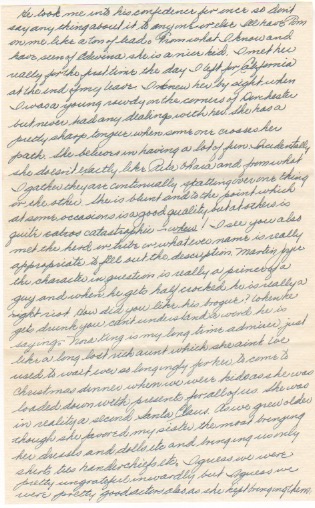 He took me into his confidence for once so don't
say anything about it to anyone or else he'll have 
on me like a ton of lead. From what I know and
have seen of Edwina she is a nice kid. I met her
really for the first time the day I left for California
at the end of my leave. I knew her by sight when
I was a young rowdy on the corners of Dorchester
but never had any dealings with her. She has a
pretty sharp tongue when some one crosses her
path. She believes in having a lot of fun. Incidentally
she doesn't exactly like Rita O'Hara and from what
I gather they are continually spatting over one thing
or the other she is blunt and to the point which
at some occasions is a good quality but at others is
quite catastrophic - whew! I see you also
met the or whatever name is really
appropriate to fill out the description. Martin
the character in question is really a prince of a
guy and when he gets half crocked he is really a
sight riot. How did you like his brogue? When he
gets drunk you can't understand a word he is
saying - is my long time admirer just
like a long lost rich aunt which she ain't. We
used to wait ever so longingly for her to come to
Christmas dinner when we were kids as she was
loaded down with presents for all of us. She was
in reality a second Santa Claus. As we grew older
though she favored my sister the most bringing
her dresses and dolls, etc and bringing us only
shirts ties handerchiefs etc. I guess we were
pretty ungrateful inwardly but I guess we
were pretty good actors also as she kept bringing them.